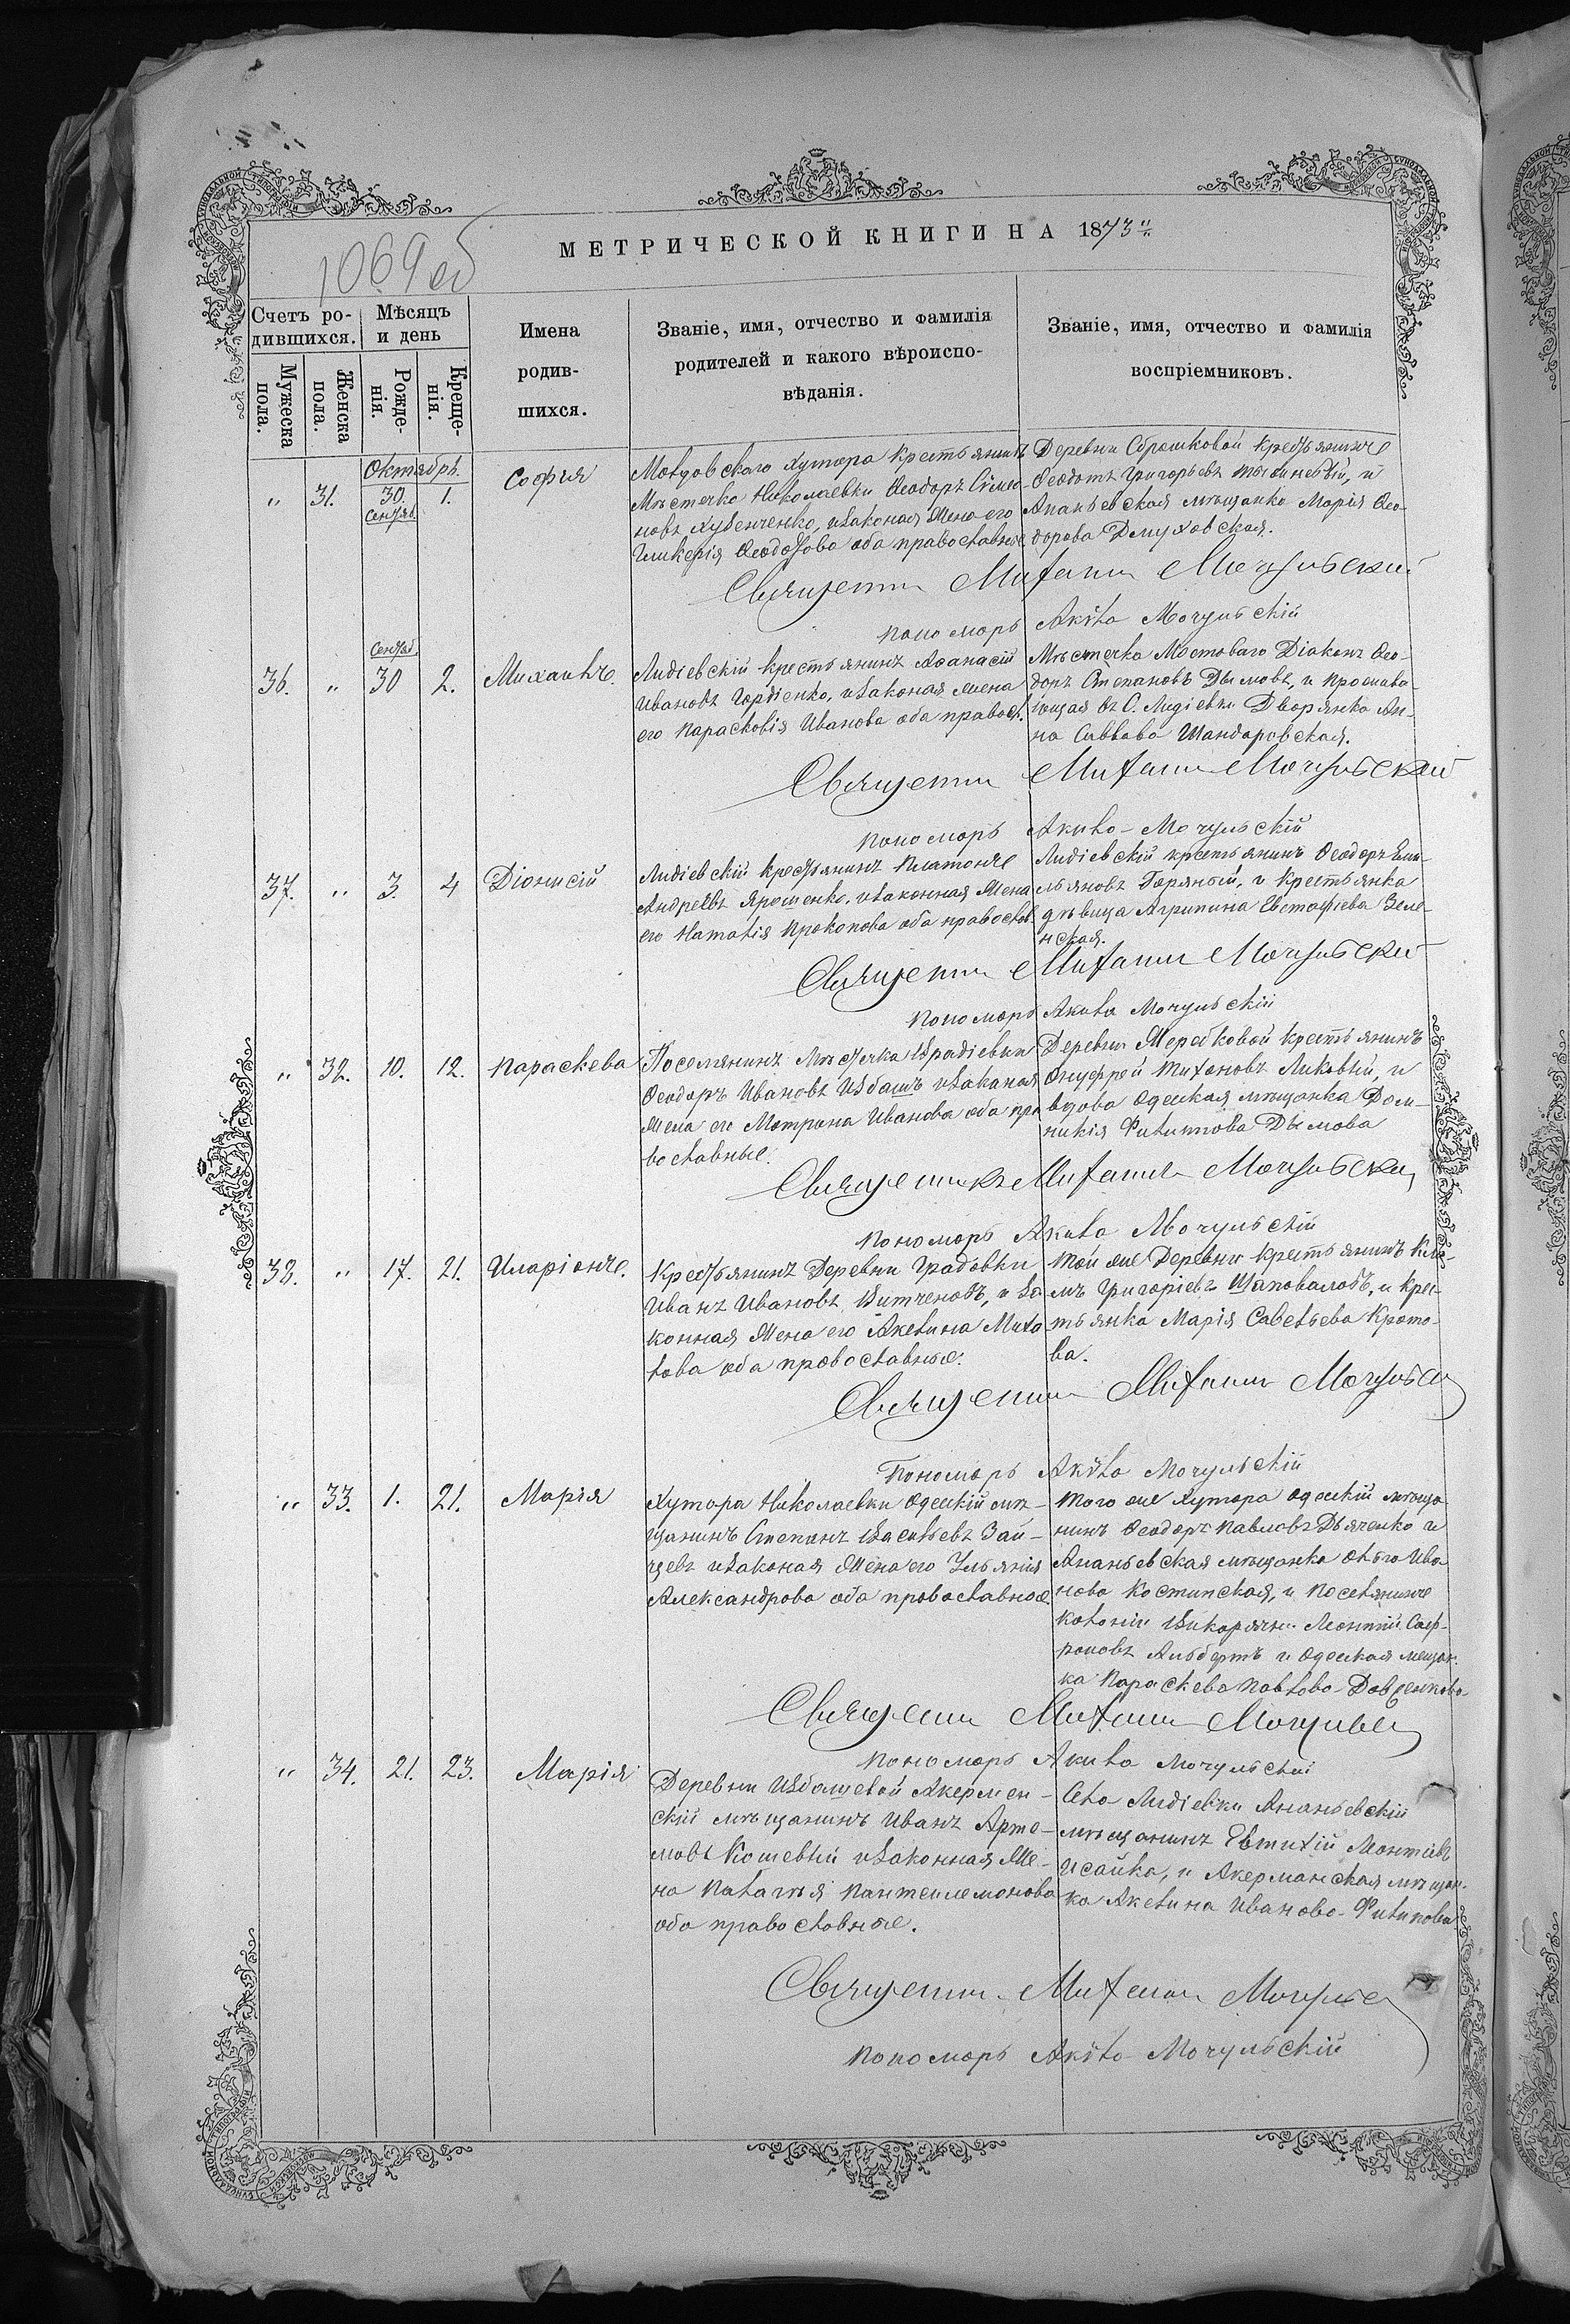 1069 об
МЕТРИЧЕСКОЙ КНИГИ НА 1873
Счетъ ро-
дившихся.
Мѣсяцъ
и день
Мужеска
пола.
Женска
пола.
Рожде-
нія.
Креще-
нія.
Имена
родив-
шихся.
Званіе, имя, отчество и фамилія
родителей и какого вѣроиспо-
вѣданія.
Званіе, имя, отчество и фамилія
воспріемниковъ.
Октябрь.
" 31. 30. Сентяб. 1. Софія
хутора крестьянинъ
Мѣстечка Николаевки Ѳеодоръ Симео-
новъ и законая жена его
Гликерія Ѳеодотова оба православные
Деревни крестьянинъ
Ѳеодотъ Григорьевъ и
Ананьевская мѣщанка Марія Ѳео-
дорова Дмуховская.
Священник Михаил Мочульский
пономарь Акила Мочульскій
36. " Сентяб. 30 2. Михаилъ.
Лидіевскій крестьянинъ Аѳанасій
Ивановъ Гордіенко, и законая жена
его Парасковія Иванова оба правосл.
Мѣстечка Мостоваго Діаконъ Ѳео-
доръ Степановъ Дымовъ, и прожива-
ющая въ С. Лидіевки Дворянка Ан-
на Саввова Шандаровская.
Священник Михаил Мочульский
пономарь Акила Мочульскій
37. " 3. 4 Діонисій
Лидіевскій крестьянинъ Платонъ
Андреевъ Ярошенко, и законная жена
его Наталія Прокопова оба православ.
Лидіевскій крестьянинъ Ѳеодоръ Еми-
льяновъ и крестьянка
дѣвица Агрипина Евстафіева Зеле-
нская.
Священник Михаил Мочульский
пономарь Акила Мочульскій
" 32. 10. 12. Параскева
Поселянинъ Мѣстечка
Ѳеодоръ Ивановъ Избашъ и законая
жена его Матрона Иванова оба пра-
вославные.
Деревни крестьянинъ
Онуфрей Тихоновъ и
вдова Одесская мѣщанка Дом-
никія Филиппова Дымова
Священникъ Михаилъ Мочульский
пономарь Акила Мочульскій
32. " 17. 21. Иларіонъ.
Крестьянинъ Деревни Градовки
Иванъ Ивановъ и за-
конная жена его Акелина Миха-
лова оба православные.
Той же Деревни крестьянинъ Кли-
мъ Григоріевъ Шаповаловъ, и крес-
тьянка Марія Савельева Крото-
ва.
Священник Михаил Мочульский
Пономарь Акила Мочульскій
" 33. 1. 21. Марія
Хутора Николаевки Одесскій мѣ-
щанинъ Степанъ Васильевъ Зай-
цевъ и законая жена его Ульянія
Александрова оба православные
Того же хутора Одесскій мѣща-
нинъ Ѳеодоръ Павловъ Дьяченко и
Ананьевская мѣщанка Ольга Ива-
нова Костинская, и поселянинъ
колоніи Леонтій Саф-
роновъ Альбертъ и Одесская мещан-
ка Параскева Павлова
Священник Михаил Мочульский
пономарь Акила Мочульскій
" 34. 21. 23. Марія
Деревни Избашевой Акермен-
скій мѣщанинъ Иванъ Арто-
мовъ Кошевый и законная же-
на Палагія Пантелемонова
оба православные.
Села Лидіевки Ананьевскій
мѣщанинъ Евтихій Леонтіевъ
Исайка, и Акерманская мѣщан-
ка Акелина Иванова Филипова
Священник Михаил Мочульский
пономарь Акила Мочульскій